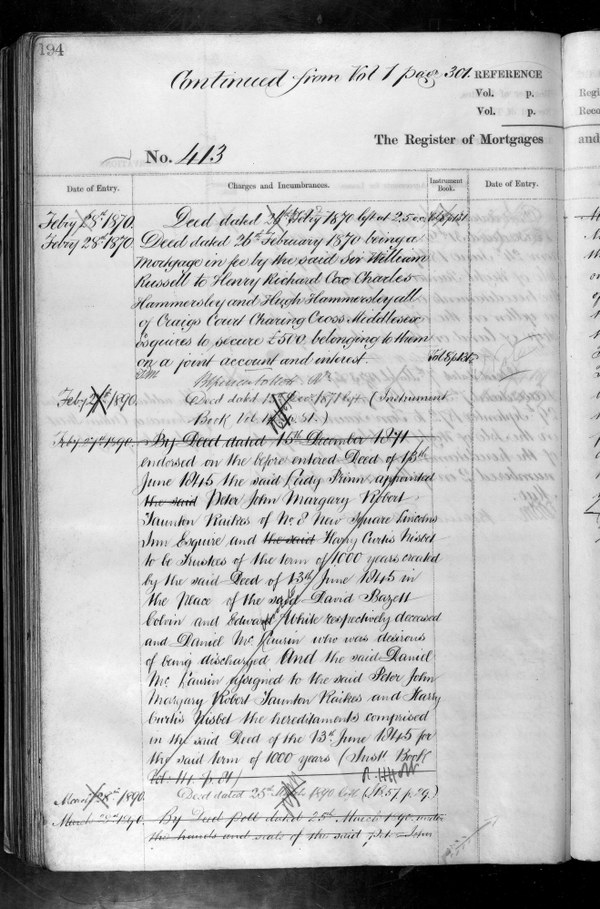 194
Continued from Vol 1 pag 301.
REFERENCE
Vol. p.
Vol. p.
The Register of Mortgages
No. 413
Date of Entry.
Charges and Incumbrances.
Instrument Book.
Date of Entry.
Febry 28th 1870.
Deed dated Febry 1870 left at 2.5
Febry 28th 1870
Deed dated 26th February 1870 being a
Mortgage in fee by the said Sir William
Russell to Henry Richard Cox Charles
Hammersley and Hugh Hammersley all
of Craigs Court Charing Cross Middlesex
Esquires to secure £500 belonging to them
on a joint account and interest.
Vol 8 p 131
Feby 1890.
Deed dated 1871 (Instrument
Book Vol. p. 81.)
Feby 1890.
By Deed dated 16th December 1871
endorsed on the before entered Deed of 13th
June 1845 the said Lady Prinn appointed
the said Peter John Margary Robert
Taunton Raikes of No 8 New Square Lincolns
Inn Esquire and the said Harry Curtis Nisbet
to be Trustees of the term of 1000 years created
by the said Deed of 13th June 1845 in
the Place of the said David Bazett
Colvin and Edward White respectively deceased
and Daniel Mc Causin who was desirous
of being discharged And the said Daniel
Mc Causin assigned to the said Peter John
Margary Robert Taunton Raikes and Harry
Curtis Nisbet the hereditaments comprised
in the said Deed of the 13th June 1845 for
the said term of 1000 years (Instt Book
Vol. 44. p. 81)
March 28th 1890.
Deed dated 25th March 1890 left (Ib. 57 p. 29.)
March 28th 1890
By Deed Poll dated 25th March 1890 under
the hands and seals of the said Peter John